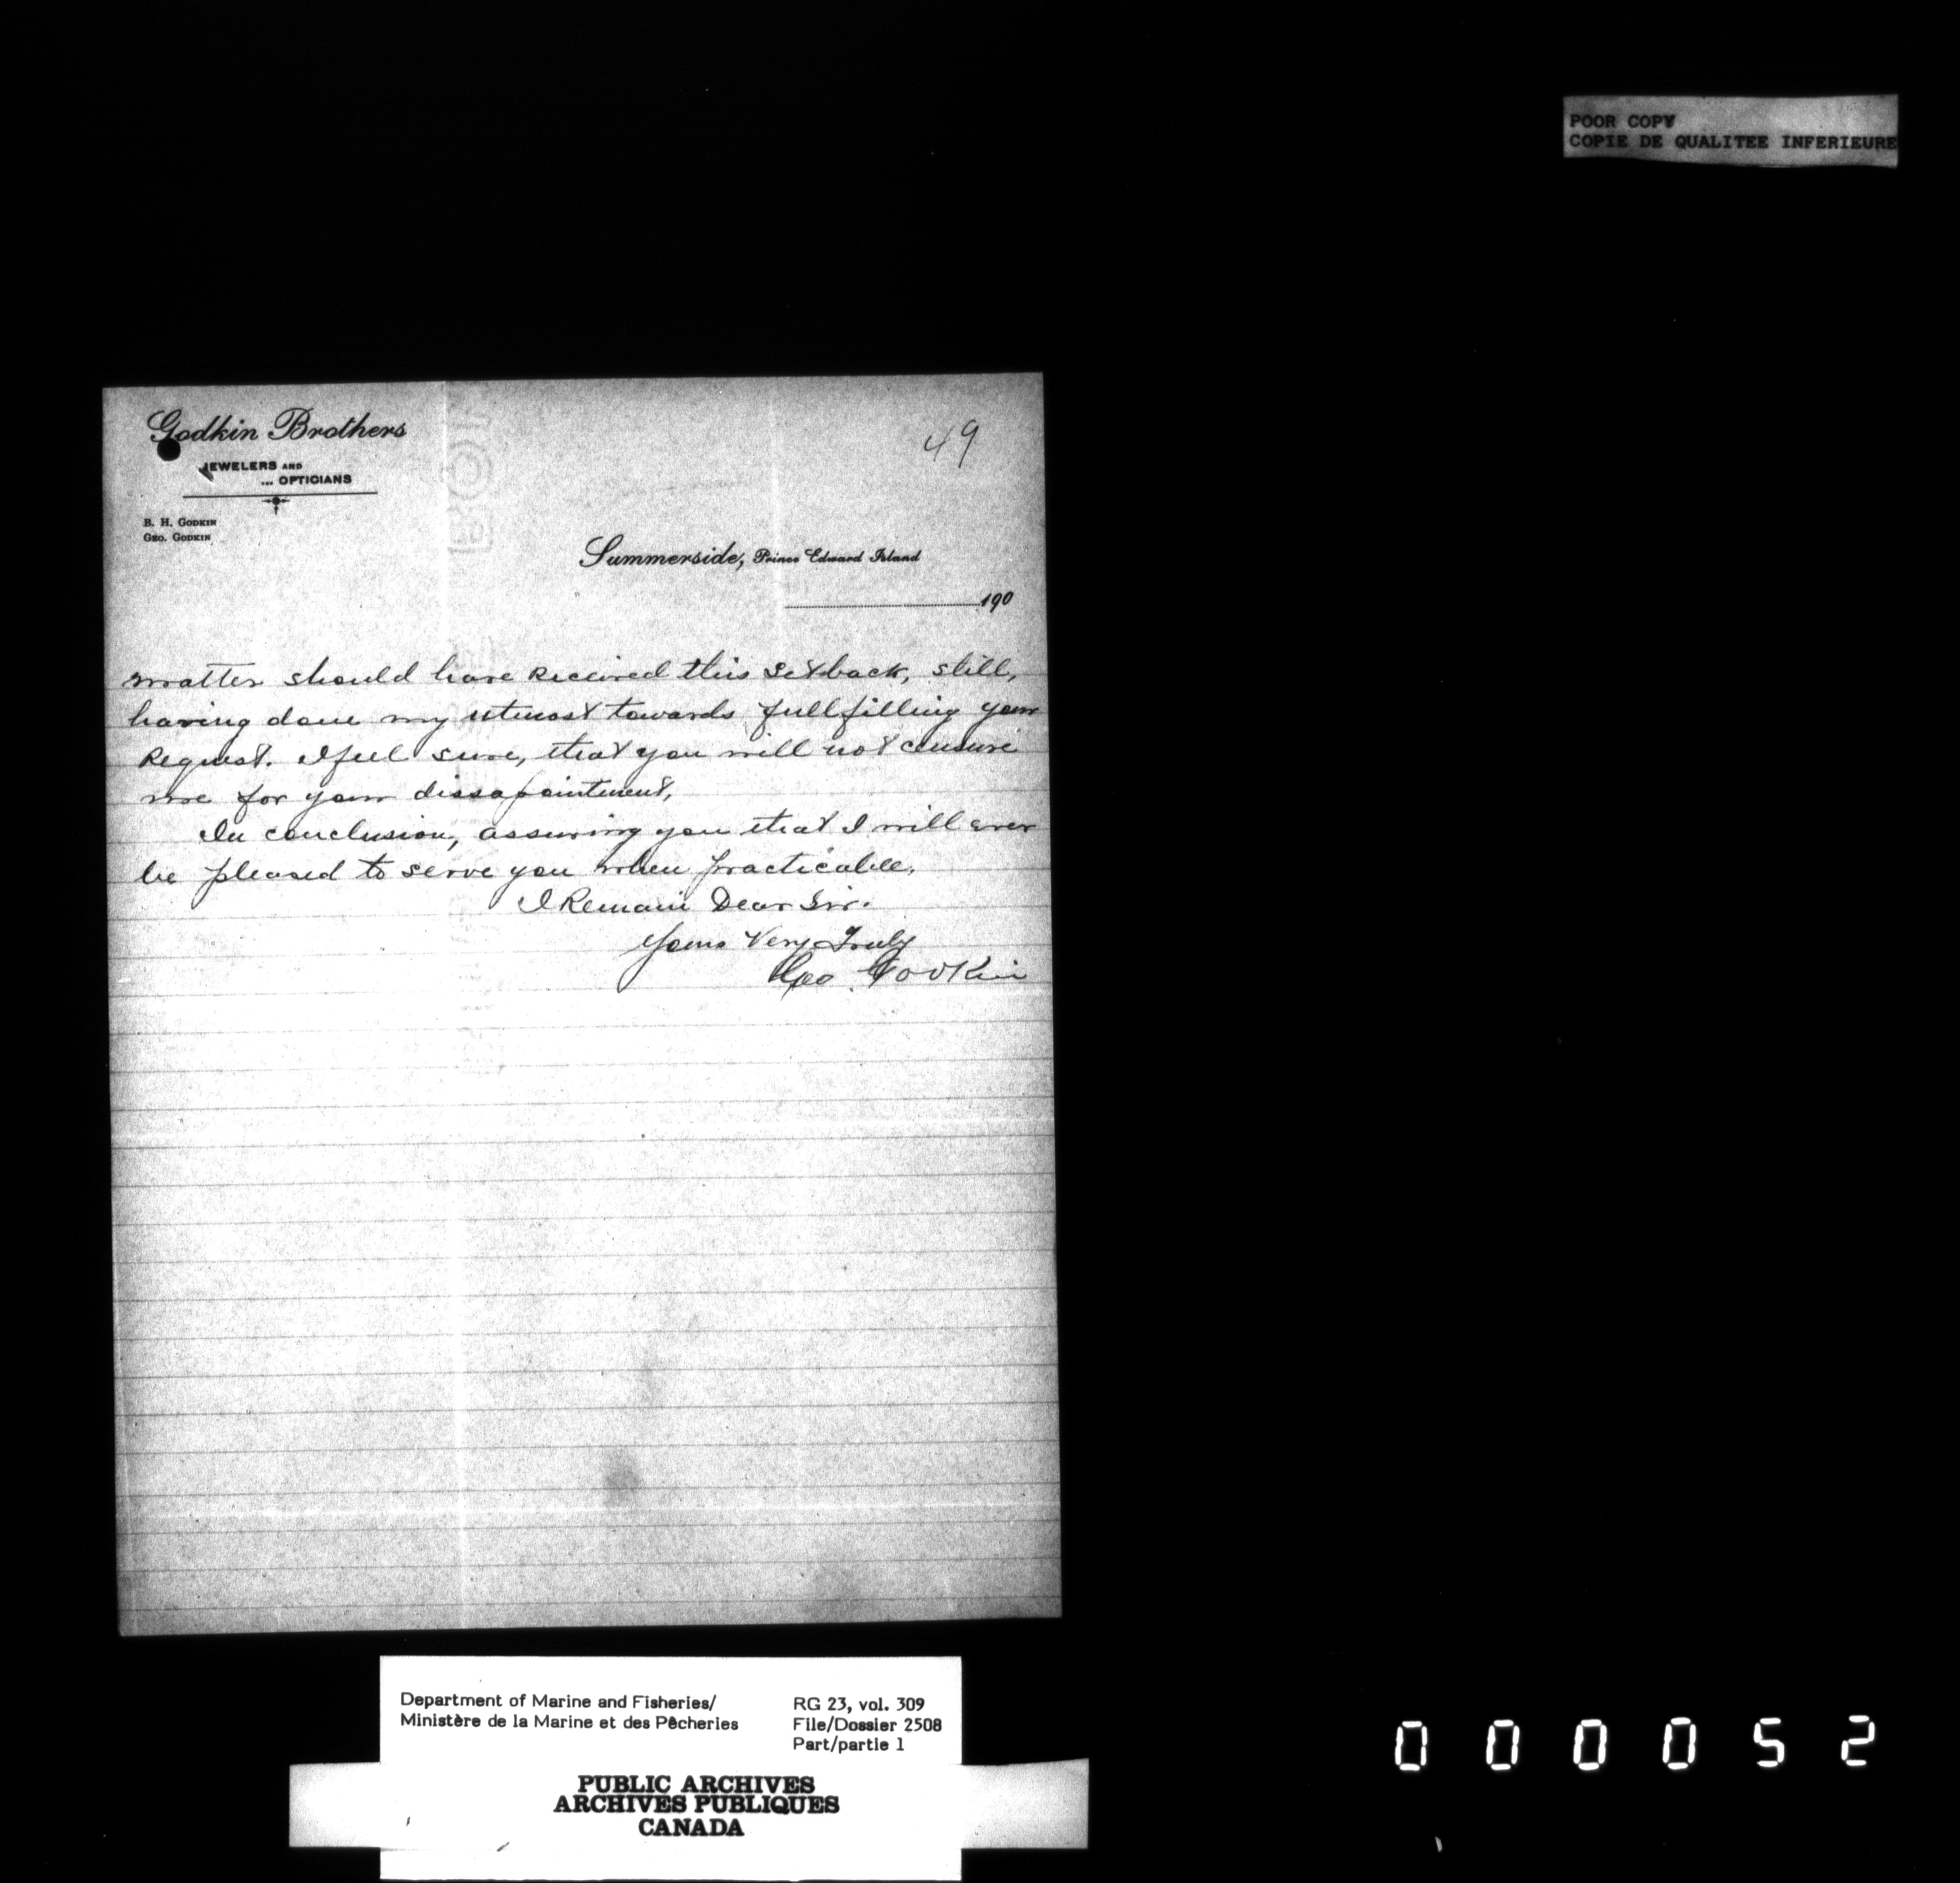 POOR COPY
COPIE DE QUALITEE INFERIEURE
Godkin Brothers
JEWELERS AND
... OPTICIANS
B. H. GODKIN
GEO. GODKIN
49
Summerside, Prince Edward Island
190
matter should have received this setback, still,
having done my utmost towards fullfilling your
Request. I feel sure, that you will not censure
me for your dissapointment,
In conclusion, assuring you that I will ever
be pleased to serve you when practicable.
I Remain Dear Sir.
Yours Very Truly
Geo. Godkin
Department of Marine and Fisheries/
Ministère de la Marine et des Pêcheries
RG 23, vol. 309
File/Dossier 2508
Part/partie 1
PUBLIC ARCHIVES
ARCHIVES PUBLIQUES
CANADA
000052